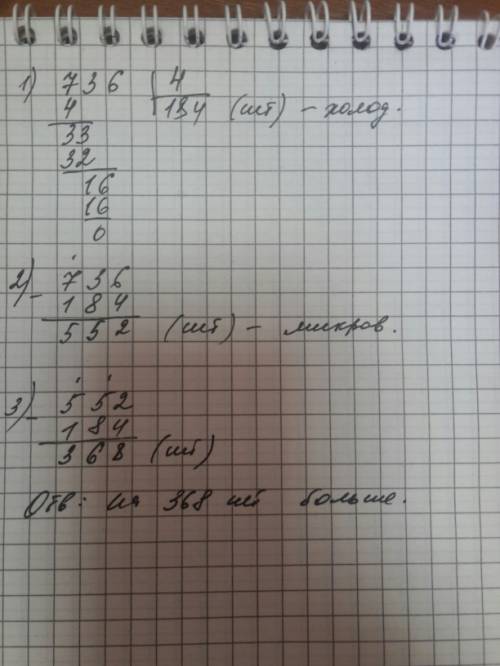 1) 736 | 4
4 134 (шт) - холод.
33
32
16
16
0
2) - 736
184
552 (шт) - микров.
3) - 552
184
368 (шт)
Отв: на 368 шт больше.